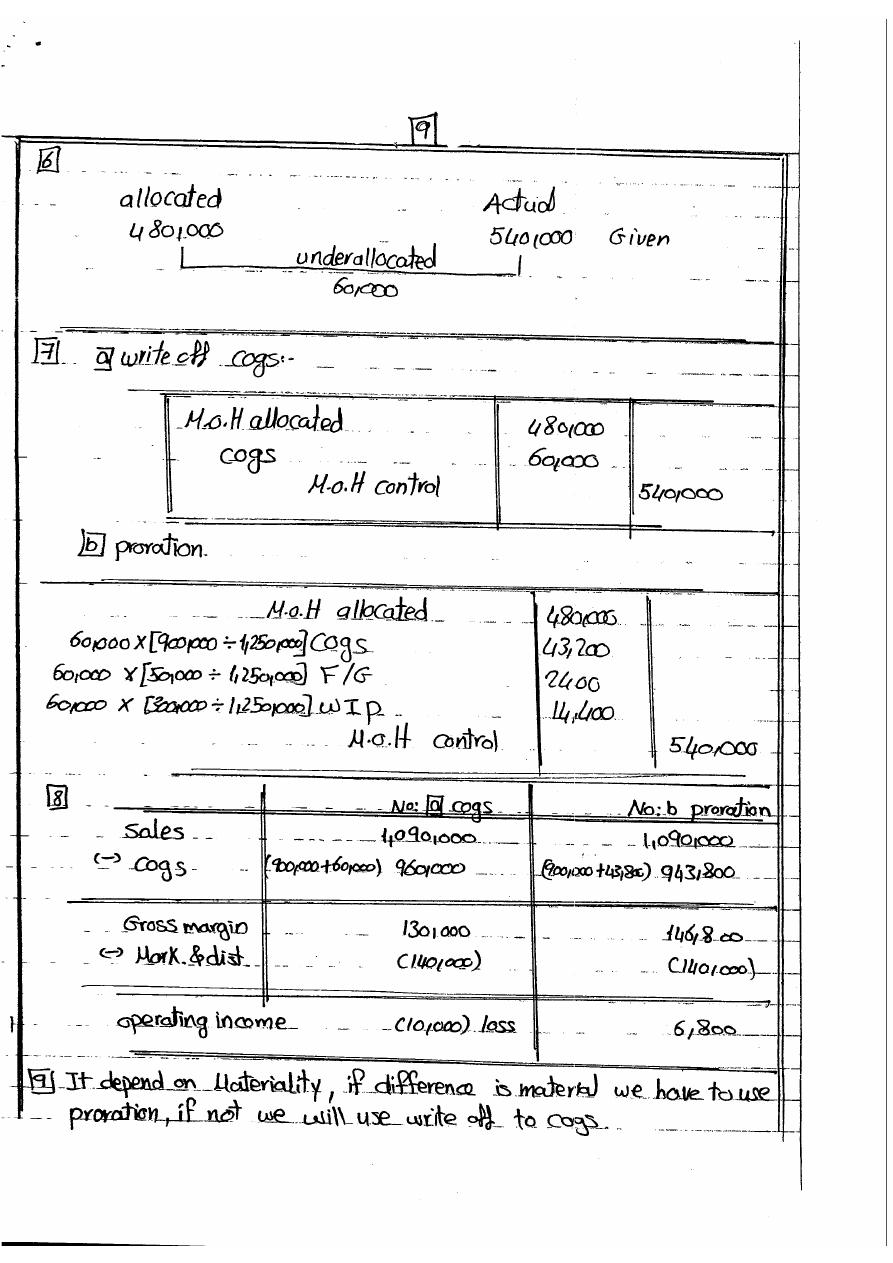 9
6
allocated Actual
480,000 540,000 Given
underallocated
60,000
7 a write off cogs:-
M.O.H allocated 480,000
cogs 60,000
M.O.H control 540,000
b proration.
M.O.H allocated 480,000
60,000 X [900,000 ÷ 1,250,000] Cogs 43,200
60,000 X [50,000 ÷ 1,250,000] F/G 2400
60,000 X [300,000 ÷ 1,250,000] WIP 14,400
M.O.H control 540,000
8 No: a cogs No: b proration
Sales 1,090,000 1,090,000
(-) Cogs (900,000+60,000) 960,000 (900,000+43,200) 943,800
Gross margin 130,000 146,800
(-) Mark. & dist. (140,000) (140,000)
operating income (10,000) loss 6,800
9 It depend on Materiality, if difference is material we have to use
proration, if not we will use write off to cogs.